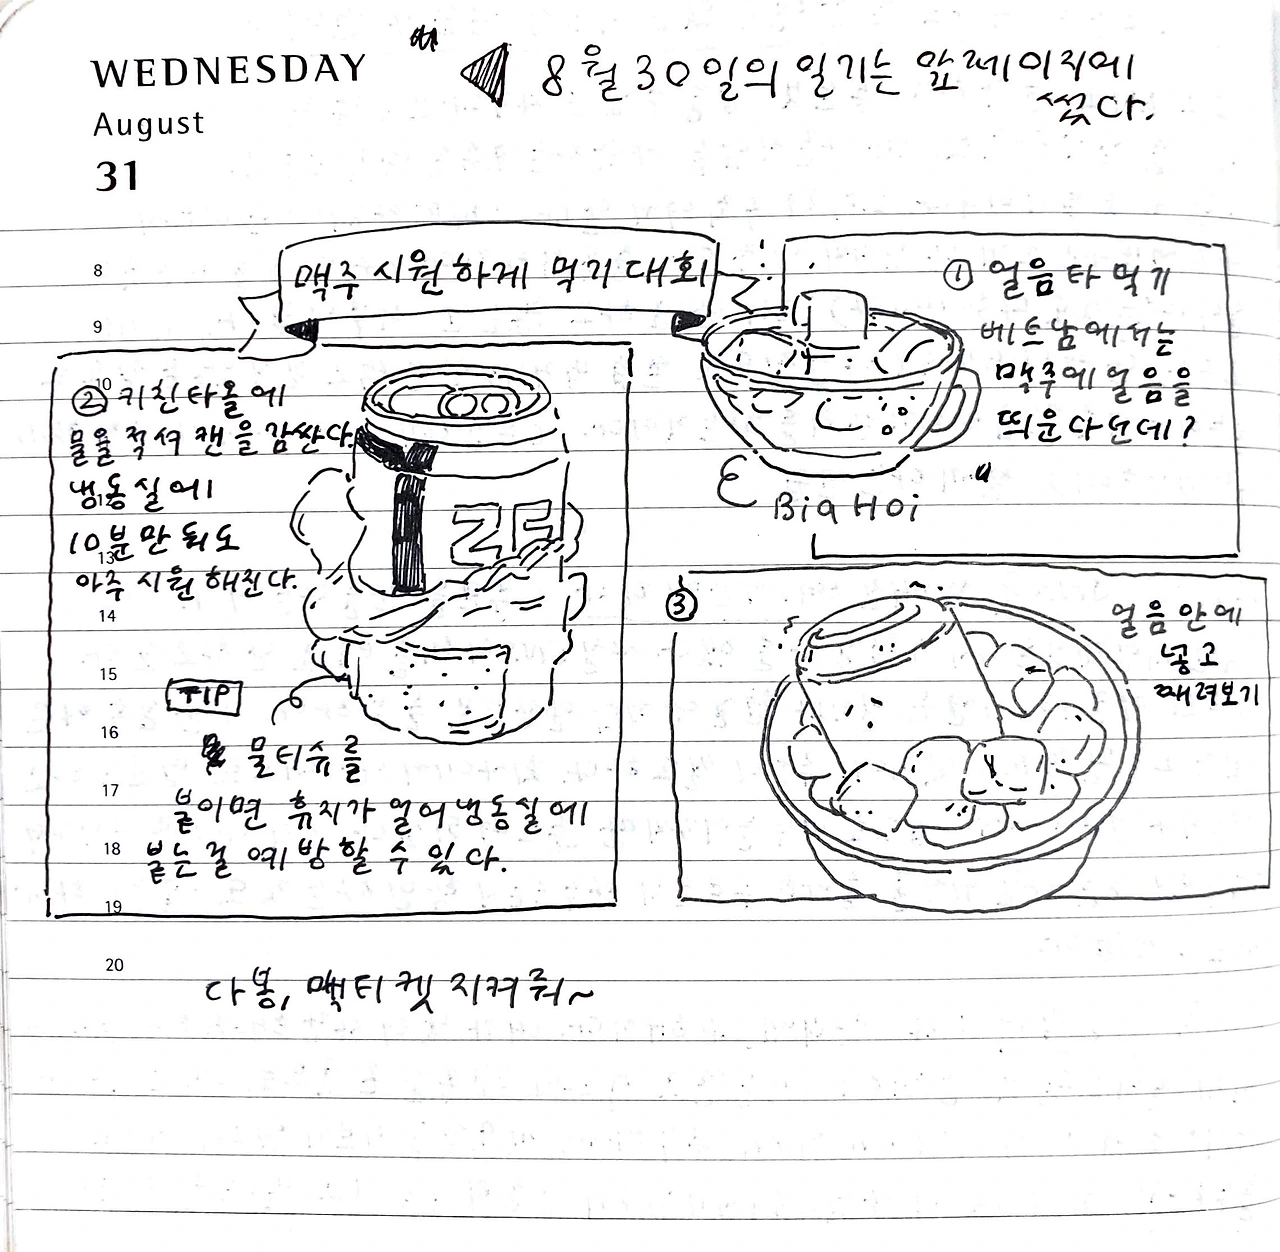 WEDNESDAY
August
31
8월 30일의 일기는 앞페이지에
썼다.
맥주 시원하게 먹기 대회
① 얼음 타 먹기
베트남에서는
맥주에 얼음을
띄운다던데?
Bia Hoi
② 키친타올에
물을 적셔 캔을 감싼다.
냉동실에
10분만 둬도
아주 시원해진다.
ZE
TIP
물티슈를
붙이면 휴지가 얼어 냉동실에
붙는 걸 예방할 수 있다.
③
얼음 안에
넣고
때려보기
다봉, 맥티켓 지켜줘~
8
9
10
11
13
14
15
16
17
18
19
20